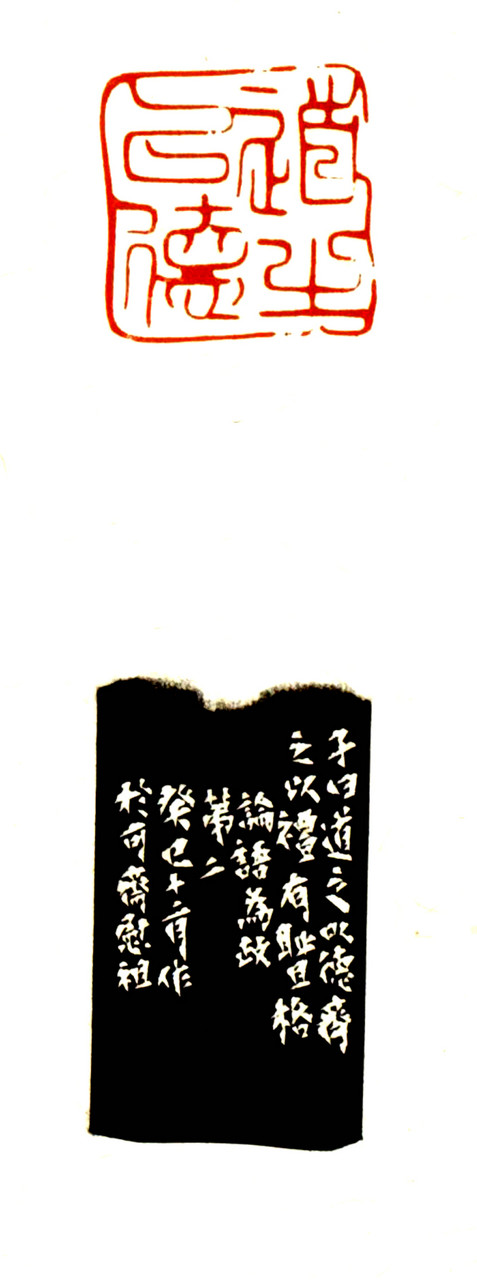 道之
以德
子曰道之以德齊
之以禮有恥且格
論語為政
第二
癸巳十二月作
於可齋慰祖